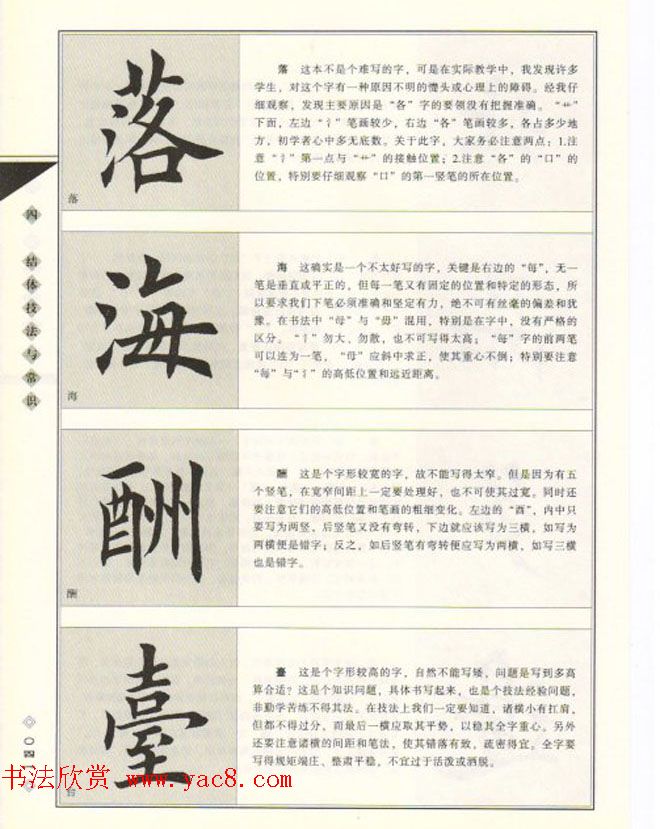 落
落
落 这本不是个难写的字，可是在实际教学中，我发现许多
学生，对这个字有一种原因不明的憷头或心理上的障碍。经我仔
细观察，发现主要原因是“各”字的要领没有把握准确。“艹”
下面，左边“氵”笔画较少，右边“各”笔画较多，各占多少地
方，初学者心中多无底数。关于此字，大家务必注意两点：1.注
意“氵”第一点与“艹”的接触位置；2.注意“各”的“口”的
位置，特别要仔细观察“口”的第一竖笔的所在位置。
四 结体技法与常识
海
海
海 这确实是一个不太好写的字，关键是右边的“每”，无一
笔是垂直或平正的，但每一笔又有固定的位置和特定的形态，所
以要求我们下笔必须准确和坚定有力，绝不可有丝毫的偏差和犹
豫。在书法中“母”与“毋”混用，特别是在字中，没有严格的
区分。“氵”勿大、勿散，也不可写得太高；“每”字的前两笔
可以连为一笔，“母”应斜中求正，使其重心不倒；特别要注意
“每”与“氵”的高低位置和远近距离。
酬
酬
酬 这是个字形较宽的字，故不能写得太窄。但是因为有五
个竖笔，在宽窄间距上一定要处理好，也不可使其过宽。同时还
要注意它们的高低位置和笔画的粗细变化。左边的“酉”，内中只
要写为两竖，后竖笔又没有弯转，下边就应该写为三横，如写为
两横便是错字；反之，如后竖笔有弯转便应写为两横，如写三横
也是错字。
臺
台
臺 这是个字形较高的字，自然不能写矮，问题是写到多高
算合适？这是个知识问题，具体书写起来，也是个技法经验问题，
非勤学苦练不得其法。在技法上我们一定要知道，诸横小有扛肩，
但都不得过分，而最后一横应取其平势，以稳其全字重心。另外
还要注意诸横的间距和笔法，使其错落有致，疏密得宜。全字要
写得规矩端庄、整肃平稳，不宜过于活泼或洒脱。
书法欣赏 www.yac8.com